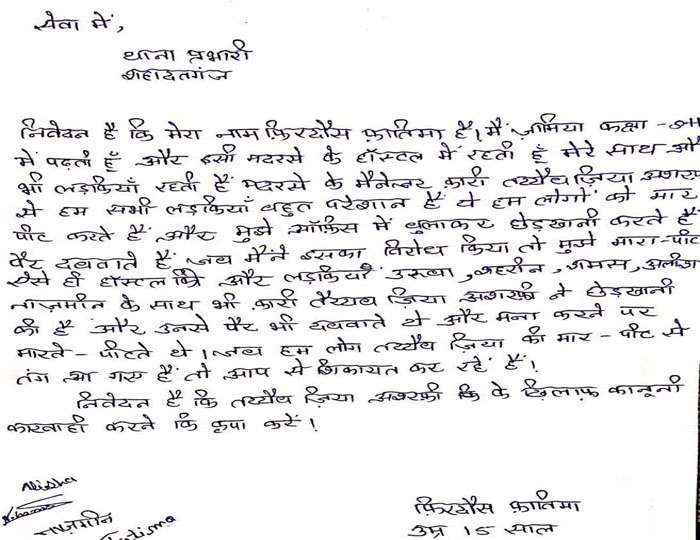 सेवा में,
थाना प्रभारी
शहादतगंज
निवेदन है कि मेरा नाम फ़िरदौस फ़ातिमा है। मैं ज़ामिया कक्षा -
में पढ़ती हूँ और इसी मदरसे के हॉस्टल में रहती हूँ मेरे साथ और
भी लड़कियाँ रहती हैं मदरसे के मैनेजर क़ारी तय्यैब ज़िया अशरफ़
से हम सभी लड़कियाँ बहुत परेशान हैं वे हम लोगों को मार
पीट करते हैं और मुझे ऑफ़िस में बुलाकर छेड़खानी करते हैं
पैर दबवाते हैं जब मैंने इसका विरोध किया तो मुझे मारा-पीटा
ऐसे ही हॉस्टल कि और लड़कियाँ उस्वा, शहरीन, शमस, अलीशा
नाज़मीन के साथ भी क़ारी तैय्यब ज़िया अशरफ़ी ने छेड़खानी
की है और उनसे पैर भी दबवाते थे और मना करने पर
मारते-पीटते थे। जब हम लोग तय्यैब ज़िया की मार-पीट से
तंग आ गए हैं तो आप से शिकायत कर रहें हैं।
निवेदन है कि तय्यैब ज़िया अशरफ़ी के ख़िलाफ़ कानूनी
कारवाही करने कि कृपा करें।
Alisha
नाज़मीन
फ़िरदौस फ़ातिमा
उम्र 15 साल